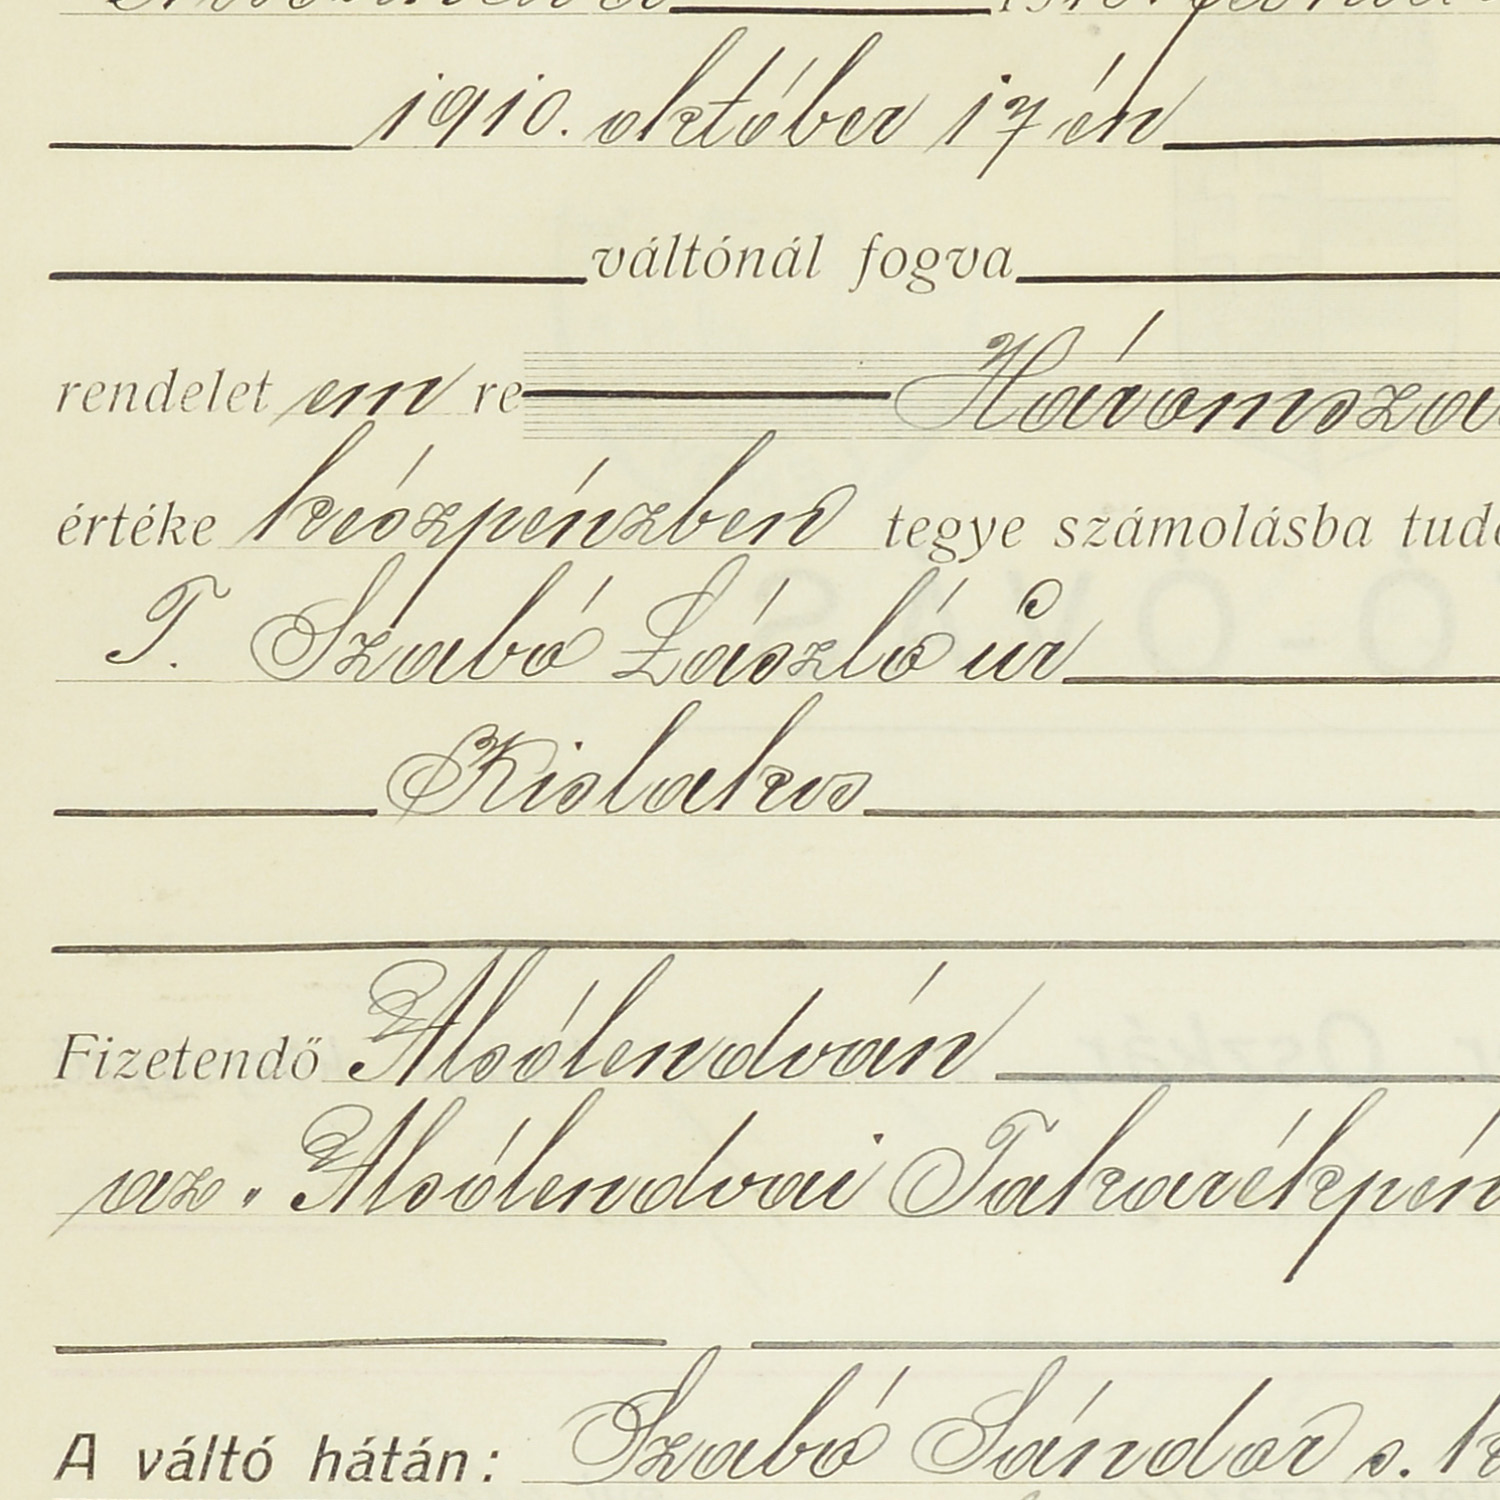 1910. október 17 én
váltónál fogva
rendelet em re
értéke készpénzben tegye számolásba
T. Szabó László úr
Kislakos
Fizetendő Alsólendván
az „Alsólendvai
A váltó hátán: Szabó Sándor s. k